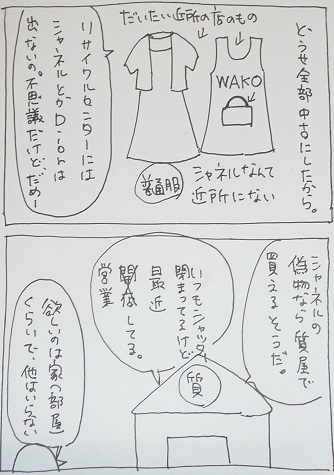 どうせ全部中古にしたから。
だいたい近所の店のもの
WAKO
普通服
シャネルなんて
近所にない
リサイクルセンターには
シャネルとかDiorは
出ないの。不思議だけどだめー
シャネルの
偽物なら質屋で
買えるそうだ。
いつもシャッター
閉まってるけど
最近
してる。
営業
質
欲しいのは家の部屋
くらいで、他はいらない